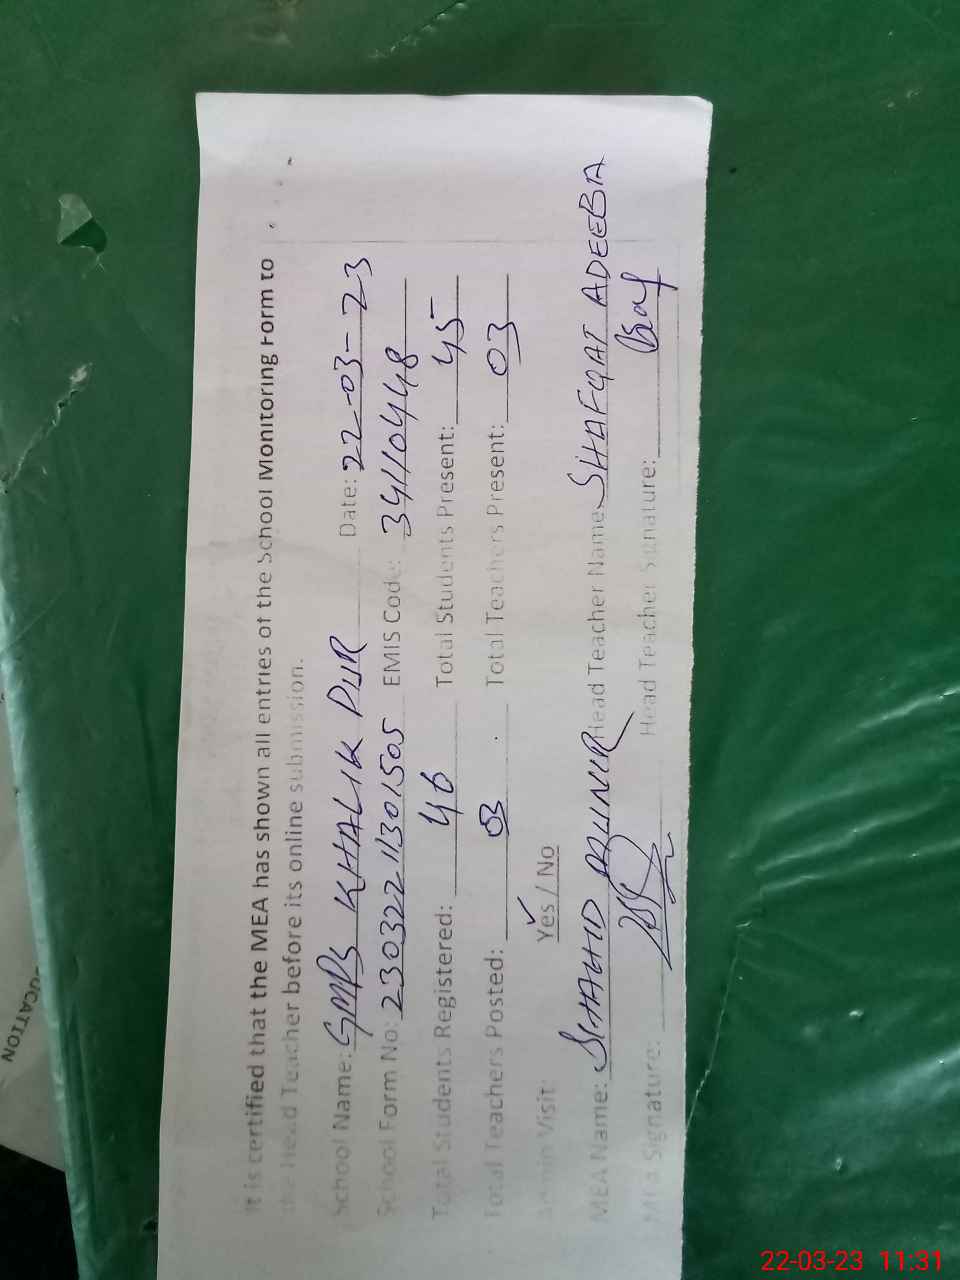 It is certified that the MEA has shown all entries of the School Monitoring Form to
the Head Teacher before its online submission.
School Name: GMPS KHALIK PUR Date: 22-03-23
School Form No: 23032211301505 EMIS Code: 34110448
Total Students Registered: 46 Total Students Present: 45
Total Teachers Posted: 03 Total Teachers Present: 03
Admin Visit: Yes / No
MEA Name: SHAHID Head Teacher Name: SHAFQAT ADEEBA
MEA Signature: Head Teacher Signature:
UCATION
22-03-23 11:31